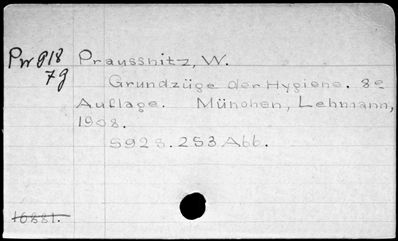 Pw 818 Praussnitz, W.
7g
Grundzüge der Hygiene. 8e
Auflage. München, Lehmann,
1908.
592 S. 253 Abb.
16881.